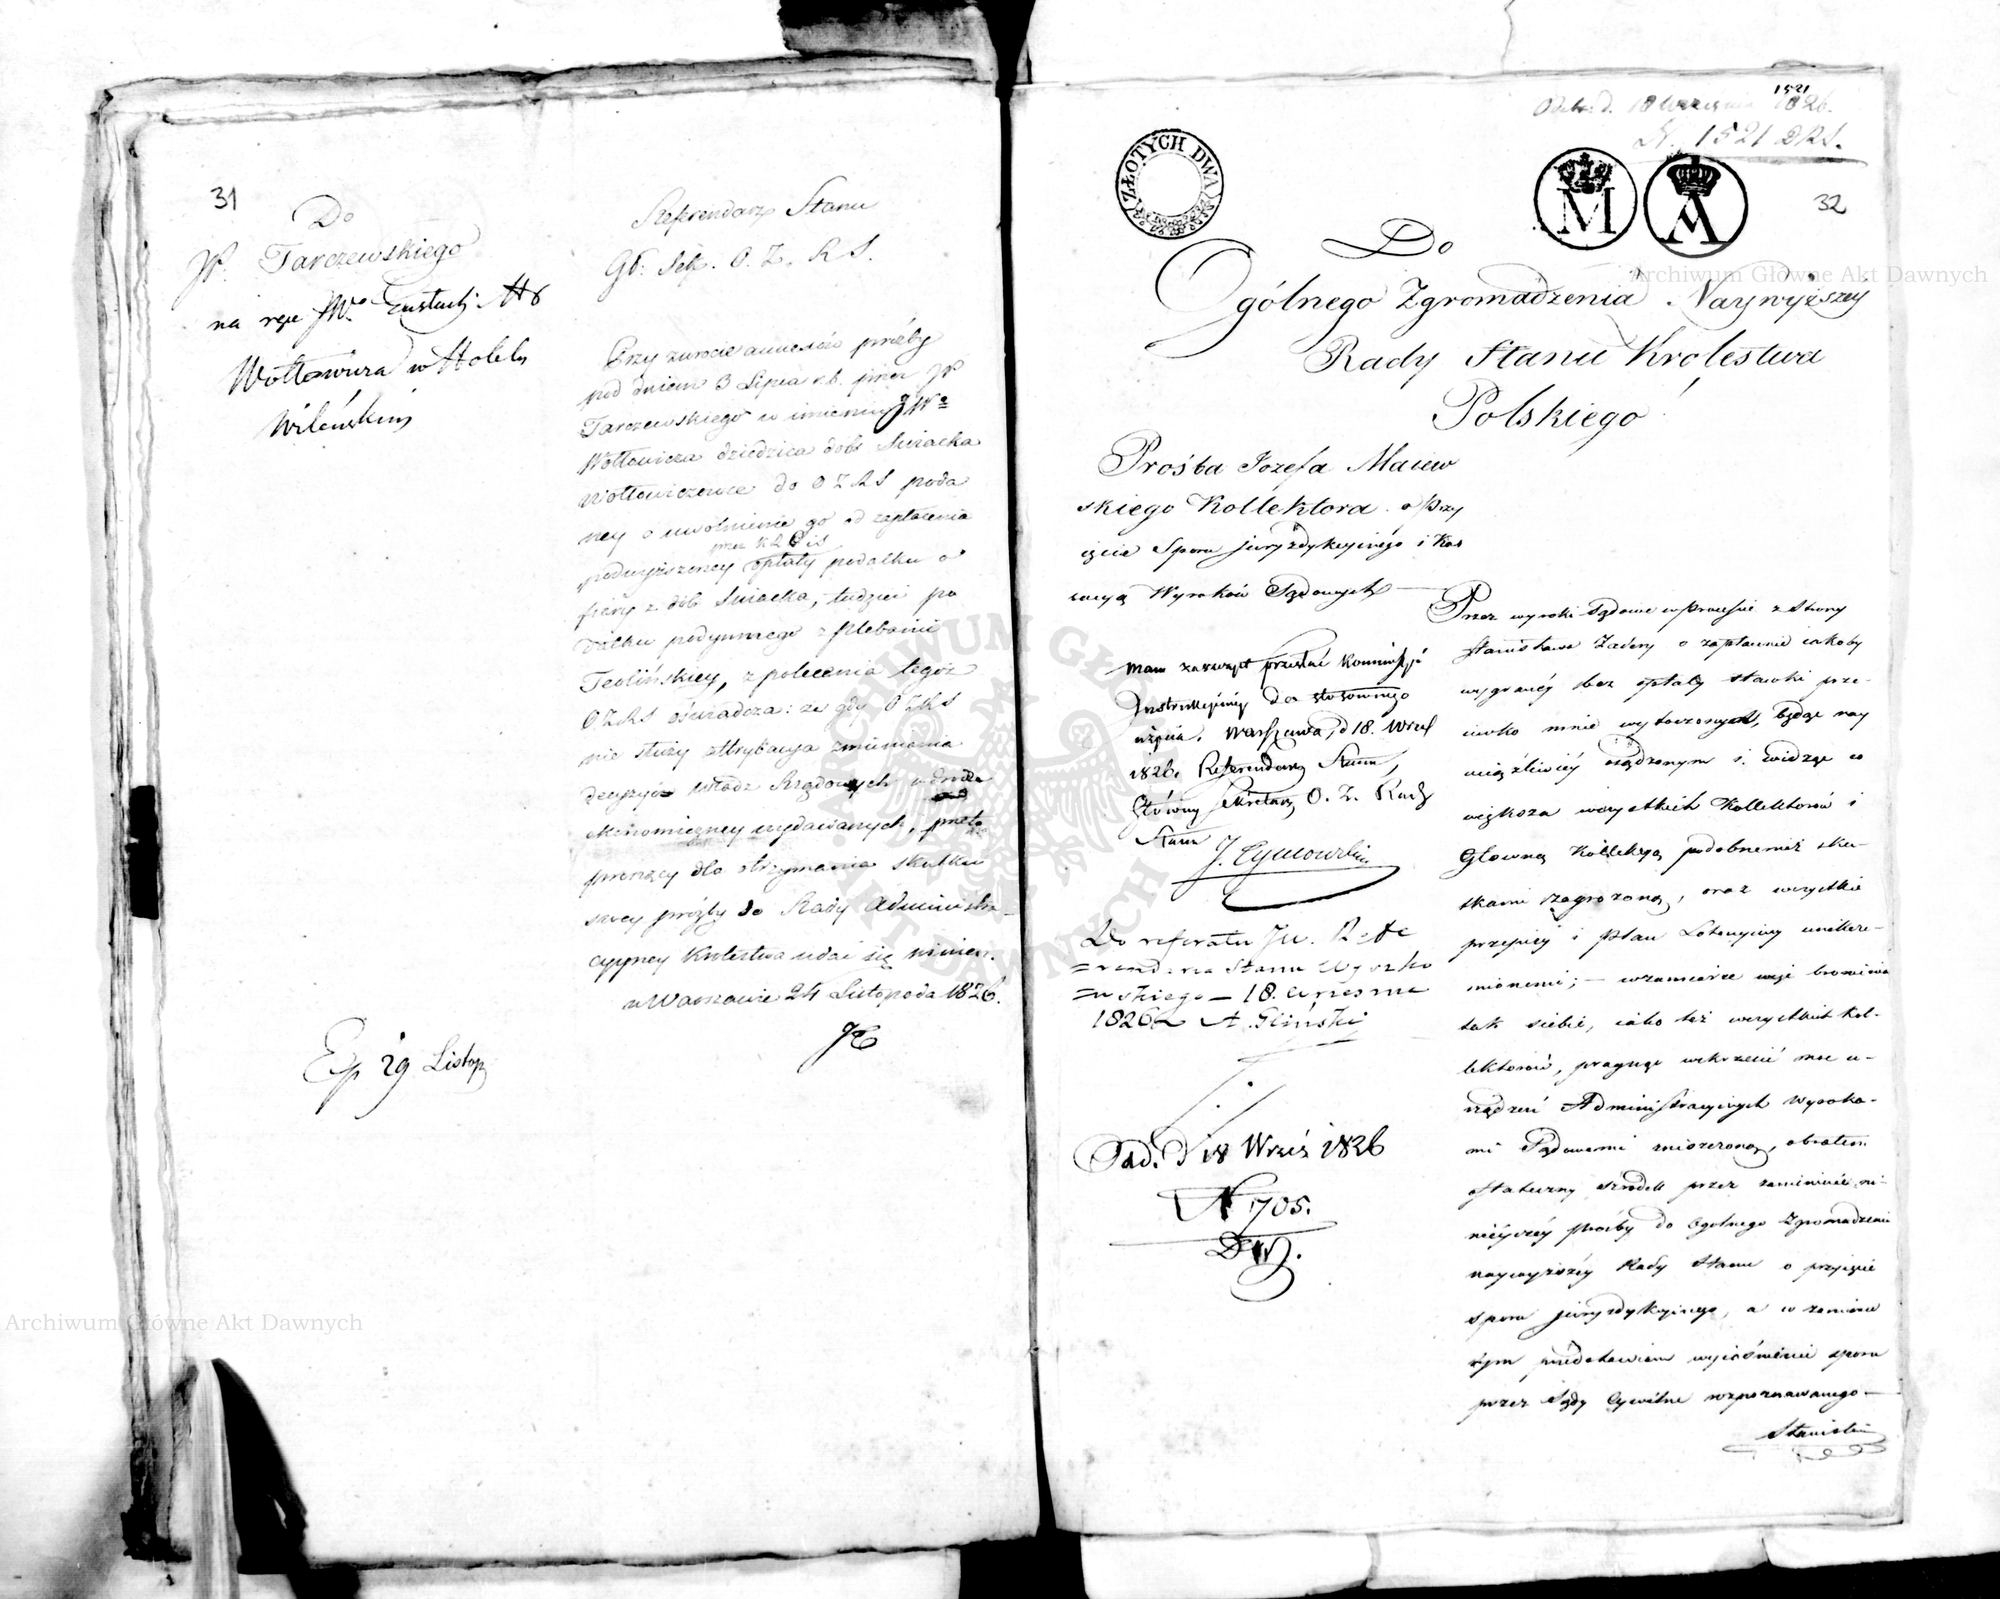 31
Do
JP. Tarczewskiego
na ręce JWo Eustach: Hr
Wołłowicza w
Wileńskim
Exp 29 Listop
Referendarz Stanu
Gł: Sekr. O. Z. R S.
Przy zwrocie annexów prośby
pod dniem 3 Lipca r.b. przez JP
Tarczewskiego w imieniu JWo
Wołłowicza dziedzica dóbr Swiacka
Wołłowiczowce do OZRS poda
ney o uwolnienie go od zapłacenia
przez
podwyższoney opłaty podatku o
fiary z dóbr Swiacka, tudzież po
datku podymnego z Plebanii
Teolińskiey, z polecenia tegoż
OZRS oświadcza: że gdy OZRS
nie służy attrybucya zmieniania
decyzyów władz Rządowych w drodze
ekonomiczney wydawanych, przeto
proszący dla otrzymania skutku
swey prośby do Rady Administra-
cyyney Królestwa udać się winien.
w Warszawie 24 Listopada 1826.
1521
Odebr. d. 18 Września 1826.
N. 1521 DRS.
ZŁOTYCH DWA
M
A
32
Do
Ogólnego Zgromadzenia Naywyższey
Rady Stanu Królestwa
Polskiego
Prośba Jozefa Maiew
skiego Kollektora o Przy
ięcie Sporu juryzdykcyinego i Kas
sacyą Wyroków Sądowych —
Mam zaszczyt przesłać Kommissyi
Instrukcyiney do stosownego
użycia. Warszawa, d 18. Wrzes
1826. Referendarz Stanu,
Główny Sekretarz O. Z. Rady
Stanu
J. Tymowski
Do referatu JW. Refe
=rendarza Stanu Wyczko
=wskiego — 18. Wrzesnia
1826 A. Gliński
Odd. D 18 Wrześ 1826
N 705.
Przez wyroki Sądowe w Processie z Strony
Stanisława Zadery o zapłacenie iakoby
wygraney bez opłaty stawki prze-
ciwko mnie wytoczonym, będąc nay
uciążliwiey osądzonym i widząc co
większa wszystkich Kollektorów i
Głowną Kollekcyą podobnemiż sku-
tkami zagrożoną, oraz wszystkie
przepisy i Plan Loteryiny
— w zamiarze więc bronienia
tak siebie, iako też wszystkich Kol-
lektorów, pragnąc wskrzesić moc u-
rządzeń Administracyinych Wyroka-
mi Sądowemi zniszczoną, obrałem
ostateczny srodek przez zaniesienie ni-
nieyszey prośby do Ogolnego Zgromadzenia
naywyższey Rady Stanu o przyięcie
sporu juryzdykcyinego, a w zamiarze
tym przedstawiam wyiaśnienie sporu
przez Sądy Cywilne rozpoznawanego —
Stanisław
Archiwum Główne Akt Dawnych
Archiwum Główne Akt Dawnych
ARCHIWUM GŁÓWNE AKT DAWNYCH